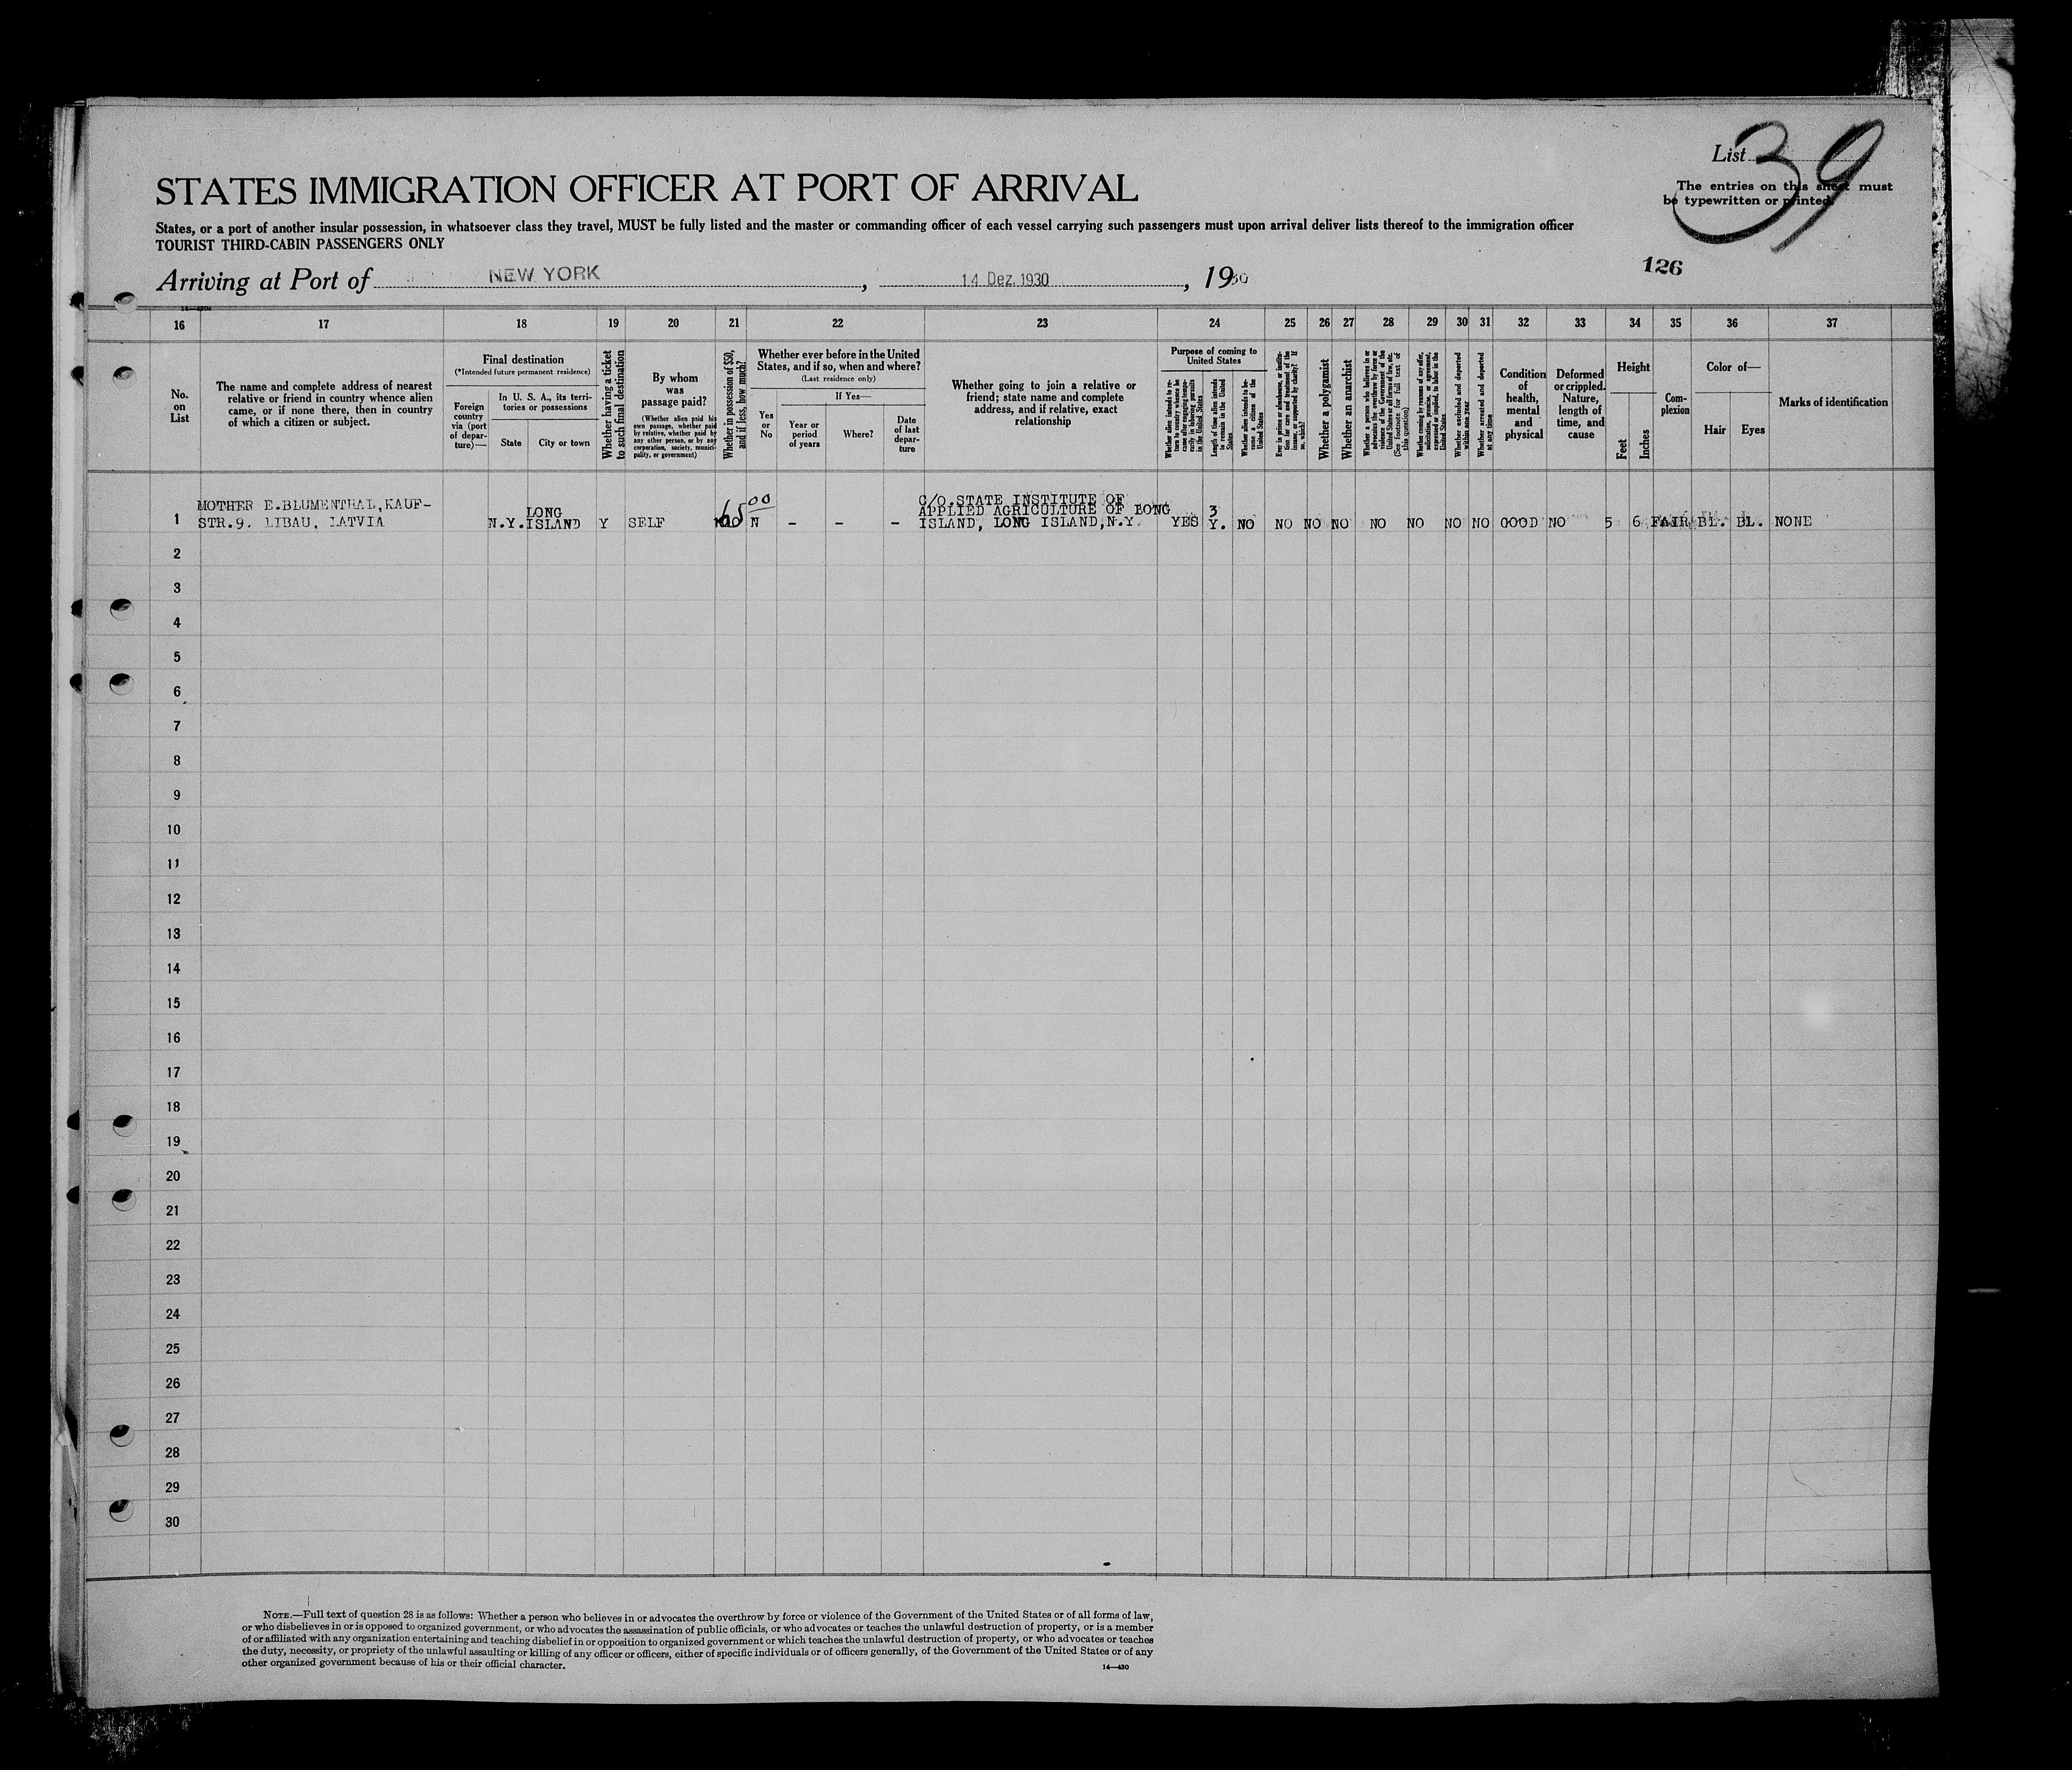 List 39
STATES IMMIGRATION OFFICER AT PORT OF ARRIVAL
The entries on this sheet must
be typewritten or printed.
States, or a port of another insular possession, in whatsoever class they travel, MUST be fully listed and the master or commanding officer of each vessel carrying such passengers must upon arrival deliver lists thereof to the immigration officer
TOURIST THIRD-CABIN PASSENGERS ONLY
126
Arriving at Port of NEW YORK, 14 Dez. 1930, 1930
16 17 18 19 20 21 22 23 24 25 26 27 28 29 30 31 32 33 34 35 36 37
No.
on
List
The name and complete address of nearest
relative or friend in country whence alien
came, or if none there, then in country
of which a citizen or subject.
Final destination
(*Intended future permanent residence)
Foreign
country
via (port
of depar-
ture)—
In U. S. A., its terri-
tories or possessions
State
City or town
Whether having a ticket
to such final destination
By whom
was
passage paid?
(Whether alien paid his
own passage, whether paid
by relative, whether paid by
any other person, or by any
corporation, society, munici-
pality, or government)
Whether in possession of $50,
and if less, how much?
Whether ever before in the United
States, and if so, when and where?
(Last residence only)
Yes
or
No
If Yes—
Year or
period
of years
Where?
Date
of last
depar-
ture
Whether going to join a relative or
friend; state name and complete
address, and if relative, exact
relationship
Purpose of coming to
United States
Whether alien intends to re-
turn to country whence he
came after engaging tempo-
rarily in laboring pursuits
in the United States
Length of time alien intends
to remain in the United
States
Whether alien intends to be-
come a citizen of the
United States
Ever in prison or almshouse, or institu-
tion for care and treatment of the
insane, or supported by charity? If
so, which?
Whether a polygamist
Whether an anarchist
Whether a person who believes in or
advocates the overthrow by force or
violence of the Government of the
United States or all forms of law, etc.
(See footnote for full text of
this question)
Whether coming by reasons of any offer,
solicitation, promise, or agreement,
expressed or implied, to labor in the
United States
Whether excluded and deported
within one year
Whether arrested and deported
at any time
Condition
of
health,
mental
and
physical
Deformed
or crippled.
Nature,
length of
time, and
cause
Height
Feet
Inches
Com-
plexion
Color of—
Hair
Eyes
Marks of identification
MOTHER E.BLUMENTHAL,KAUF-
STR.9. LIBAU, LATVIA
LONG
N.Y. ISLAND Y SELF 65 00 N - - -
C/O.STATE INSTITUTE OF
APPLIED AGRICULTURE OF LONG
ISLAND, LONG ISLAND,N.Y.
YES 3 Y. NO NO NO NO NO NO NO NO GOOD NO 5 6 FAIR BL. BL. NONE
1
2
3
4
5
6
7
8
9
10
11
12
13
14
15
16
17
18
19
20
21
22
23
24
25
26
27
28
29
30
NOTE.—Full text of question 28 is as follows: Whether a person who believes in or advocates the overthrow by force or violence of the Government of the United States or of all forms of law,
or who disbelieves in or is opposed to organized government, or who advocates the assassination of public officials, or who advocates or teaches the unlawful destruction of property, or is a member
of or affiliated with any organization entertaining and teaching disbelief in or opposition to organized government or which teaches the unlawful destruction of property, or who advocates or teaches
the duty, necessity, or propriety of the unlawful assaulting or killing of any officer or officers, either of specific individuals or of officers generally, of the Government of the United States or of any
other organized government because of his or their official character.
14—430